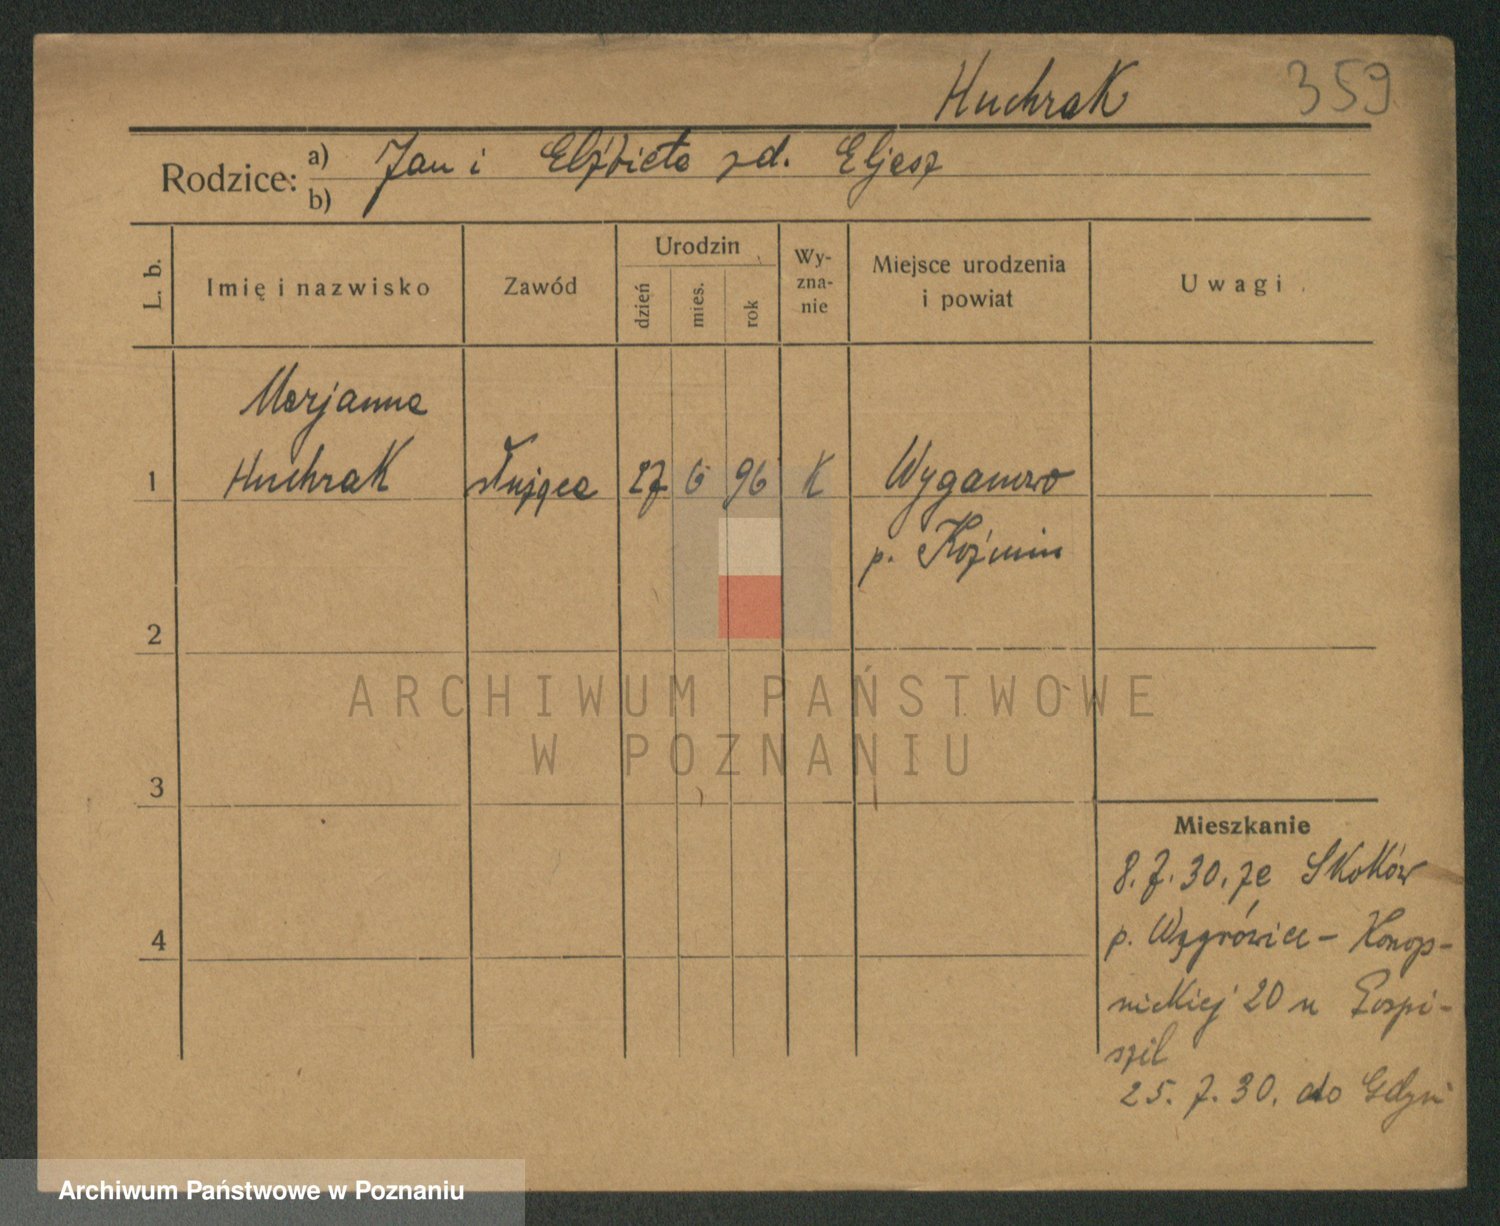 Huchrak 359
Rodzice: a) Jan i Elżbieta zd. Eljasz
b)
L. b.
Imię i nazwisko
Zawód
Urodzin
dzień
mies.
rok
Wy-
zna-
nie
Miejsce urodzenia
i powiat
Uwagi
Marjanna
1 Huchrak służąca 27 6 96 K Wyganowo
p. Koźmin
2
3
4
Mieszkanie
8.7.30. ze Skoków
p. Wągrówiec - Konop-
nickiej 20 u Pospi-
szil
25. 7. 30. do Gdyni
ARCHIWUM PAŃSTWOWE
W POZNANIU
Archiwum Państwowe w Poznaniu